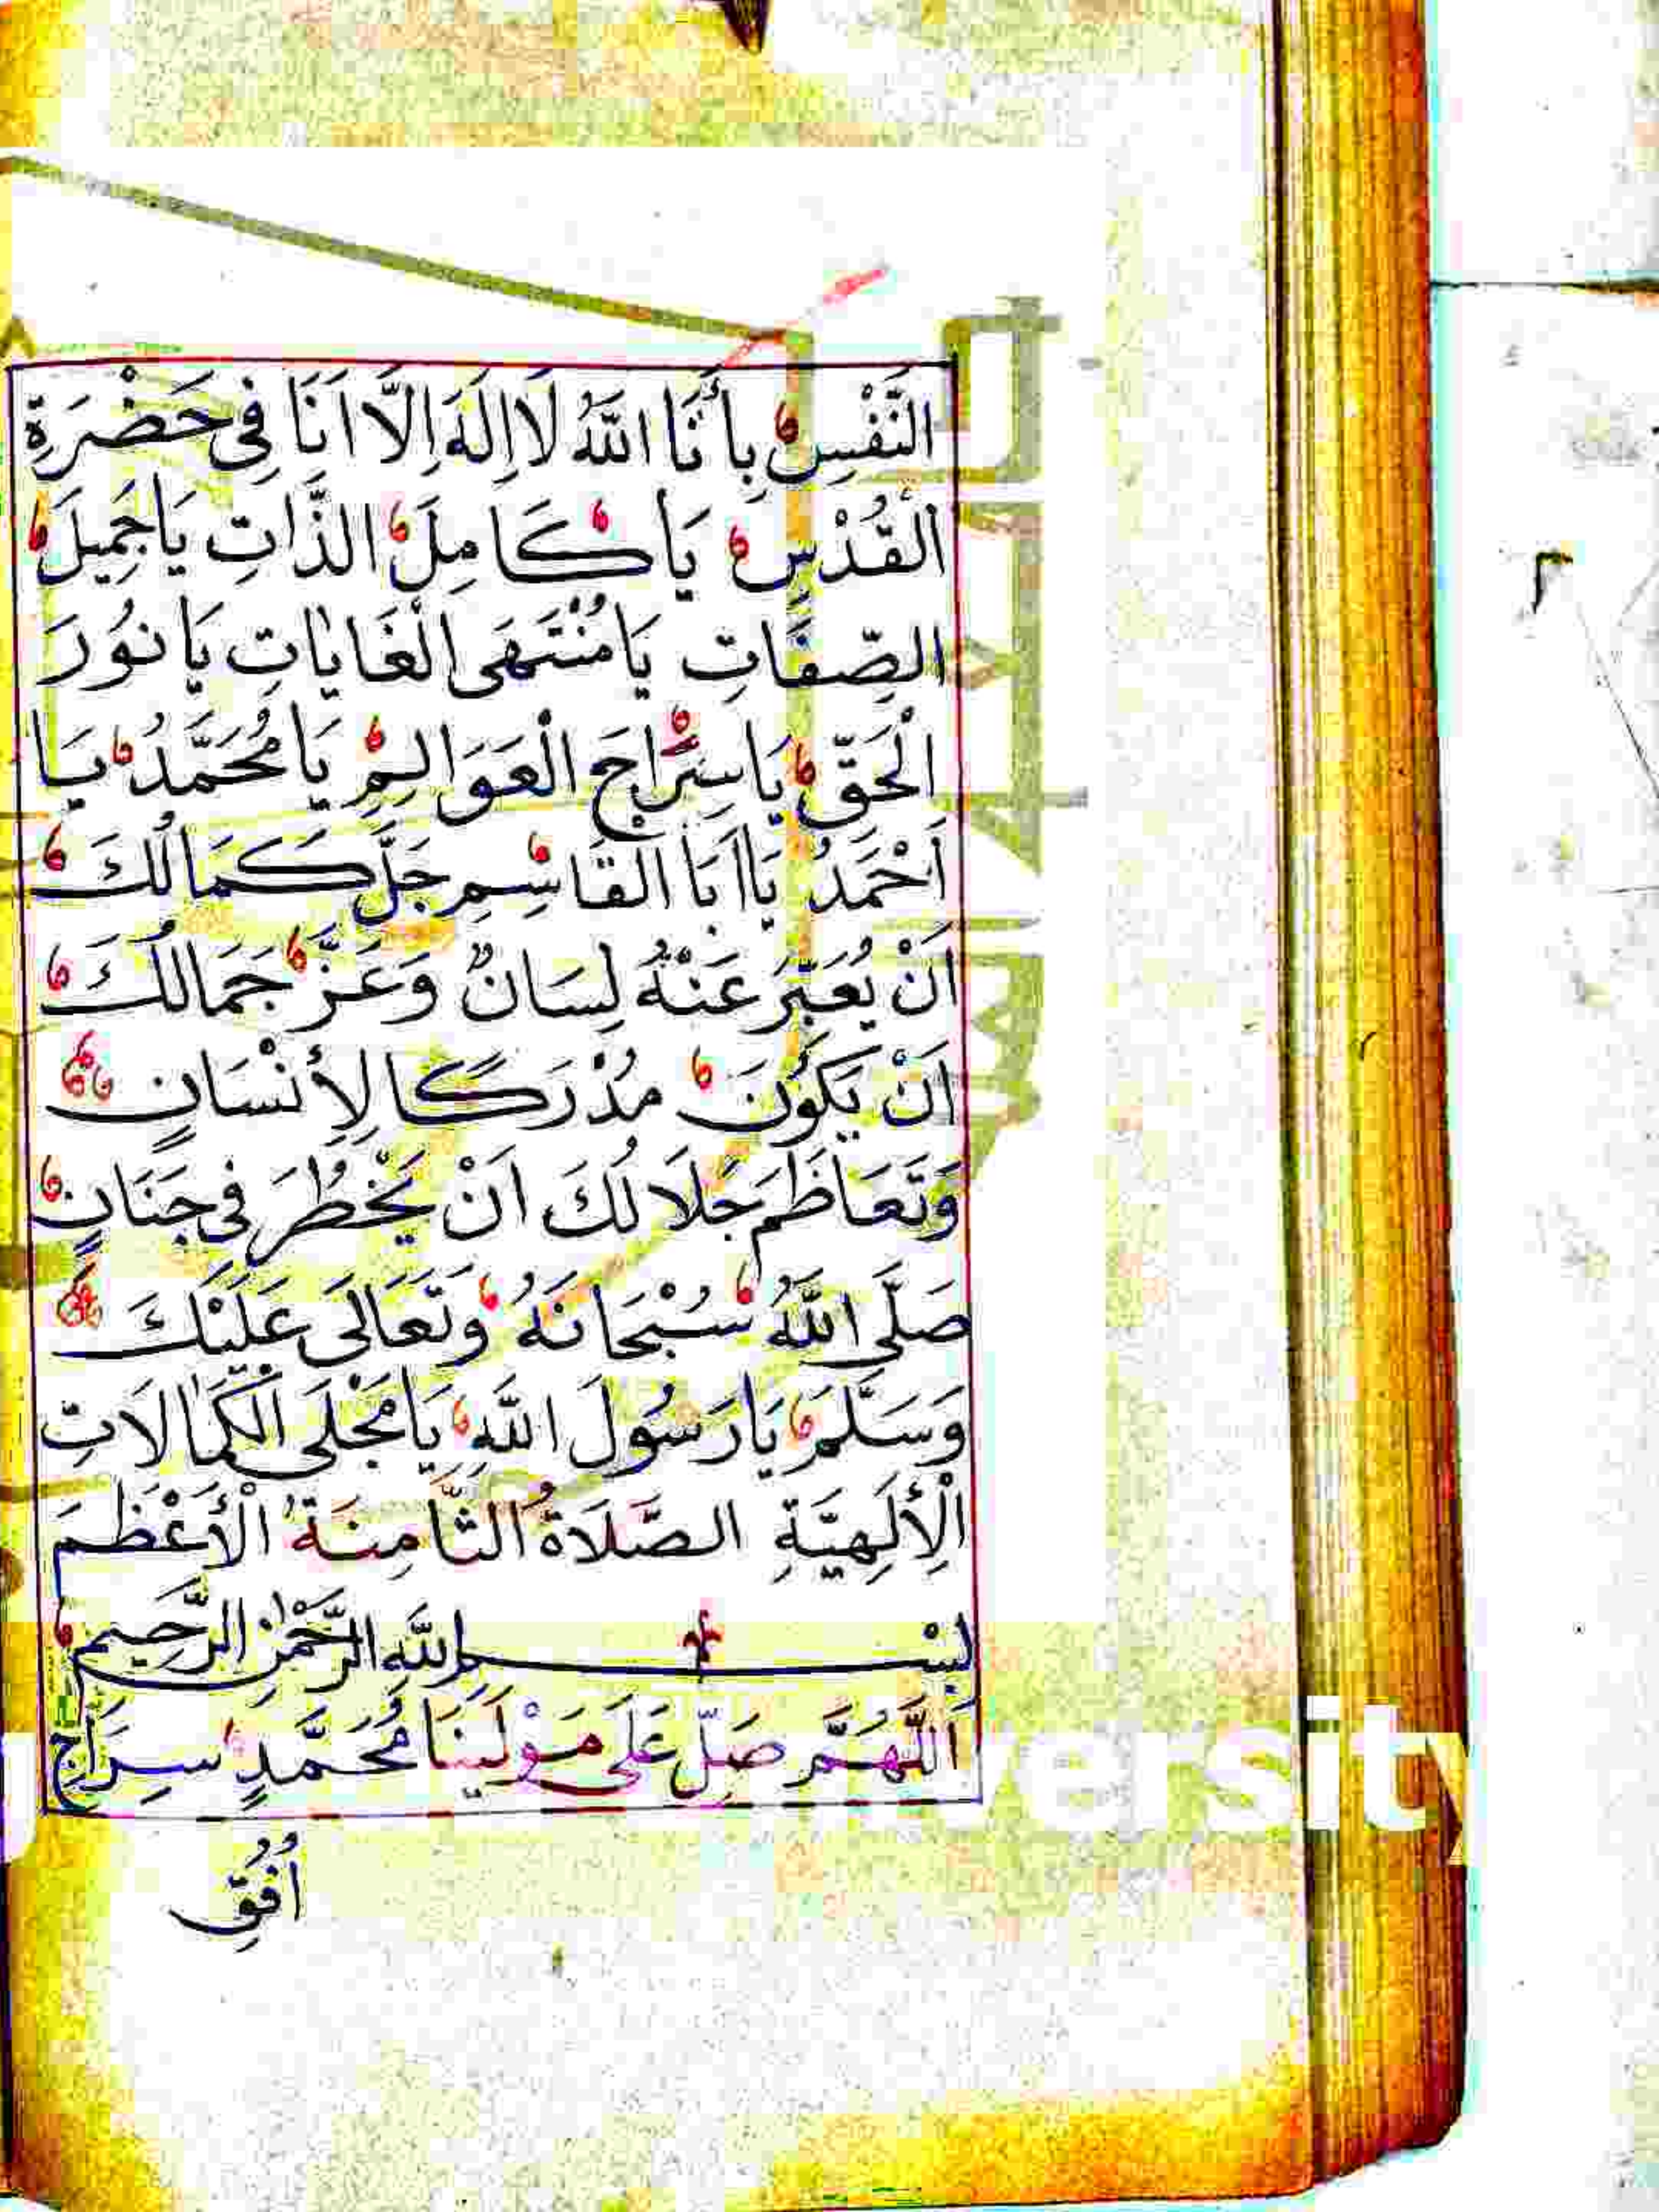 النَّفْسِ بِأَنَا اللّٰهُ لَا اِلٰهَ اِلَّا اَنَا فِى حَضْرَةِ
الْقُدْسِ يَا كَامِلَ الذَّاتِ يَاجَمِيلَ
الصِّفَاتِ يَا مُنْتَهَى الْغَايَاتِ يَا نُورَ
الْحَقِّ يَا سِرَاجَ الْعَوَالِمِ يَا مُحَمَّدُ يَا
اَحْمَدُ يَا اَبَا الْقَاسِمِ جَلَّ كَمَالُكَ
اَنْ يُعَبِّرَ عَنْهُ لِسَانٌ وَعَزَّ جَمَالُكَ
اَنْ يَكُونَ مُدْرَكًا لِأِنْسَانٍ
وَتَعَاظَمَ جَلَالُكَ اَنْ يَخْطُرَ فِى جَنَانٍ
صَلَّى اللّٰهُ سُبْحَانَهُ وَتَعَالَى عَلَيْكَ
وَسَلَّمَ يَا رَسُولَ اللّٰهِ يَا مَجْلَى الْكَمَالَاتِ
الْأِلٰهِيَّةِ الصَّلَاةُ الثَّامِنَةُ الْأَعْظَمَ
بِسْمِ اللّٰهِ الرَّحْمٰنِ الرَّحِيمِ
اَللّٰهُمَّ صَلِّ عَلَى مَوْلَينَا مُحَمَّدٍ سِرَاجِ
اُفُقِ
versity